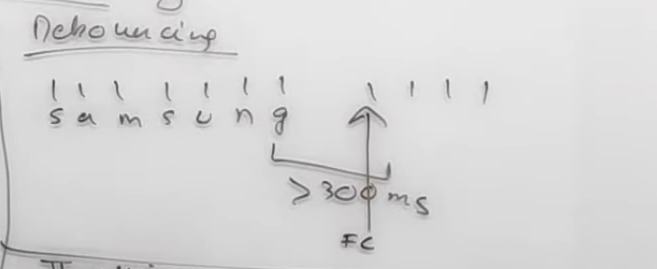 Debouncing
s a m s u n g
> 300 ms
FC